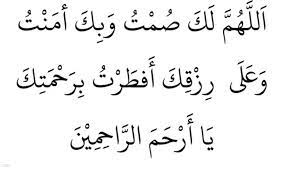 اَللَّهُمَّ لَكَ صُمْتُ وَبِكَ أمَنْتُ
وَعَلَى رِزْقِكَ أَفطَرْتُ بِرَحْمَتِكَ
يَا أَرْحَمَ الرَّاحِمِيْنَ